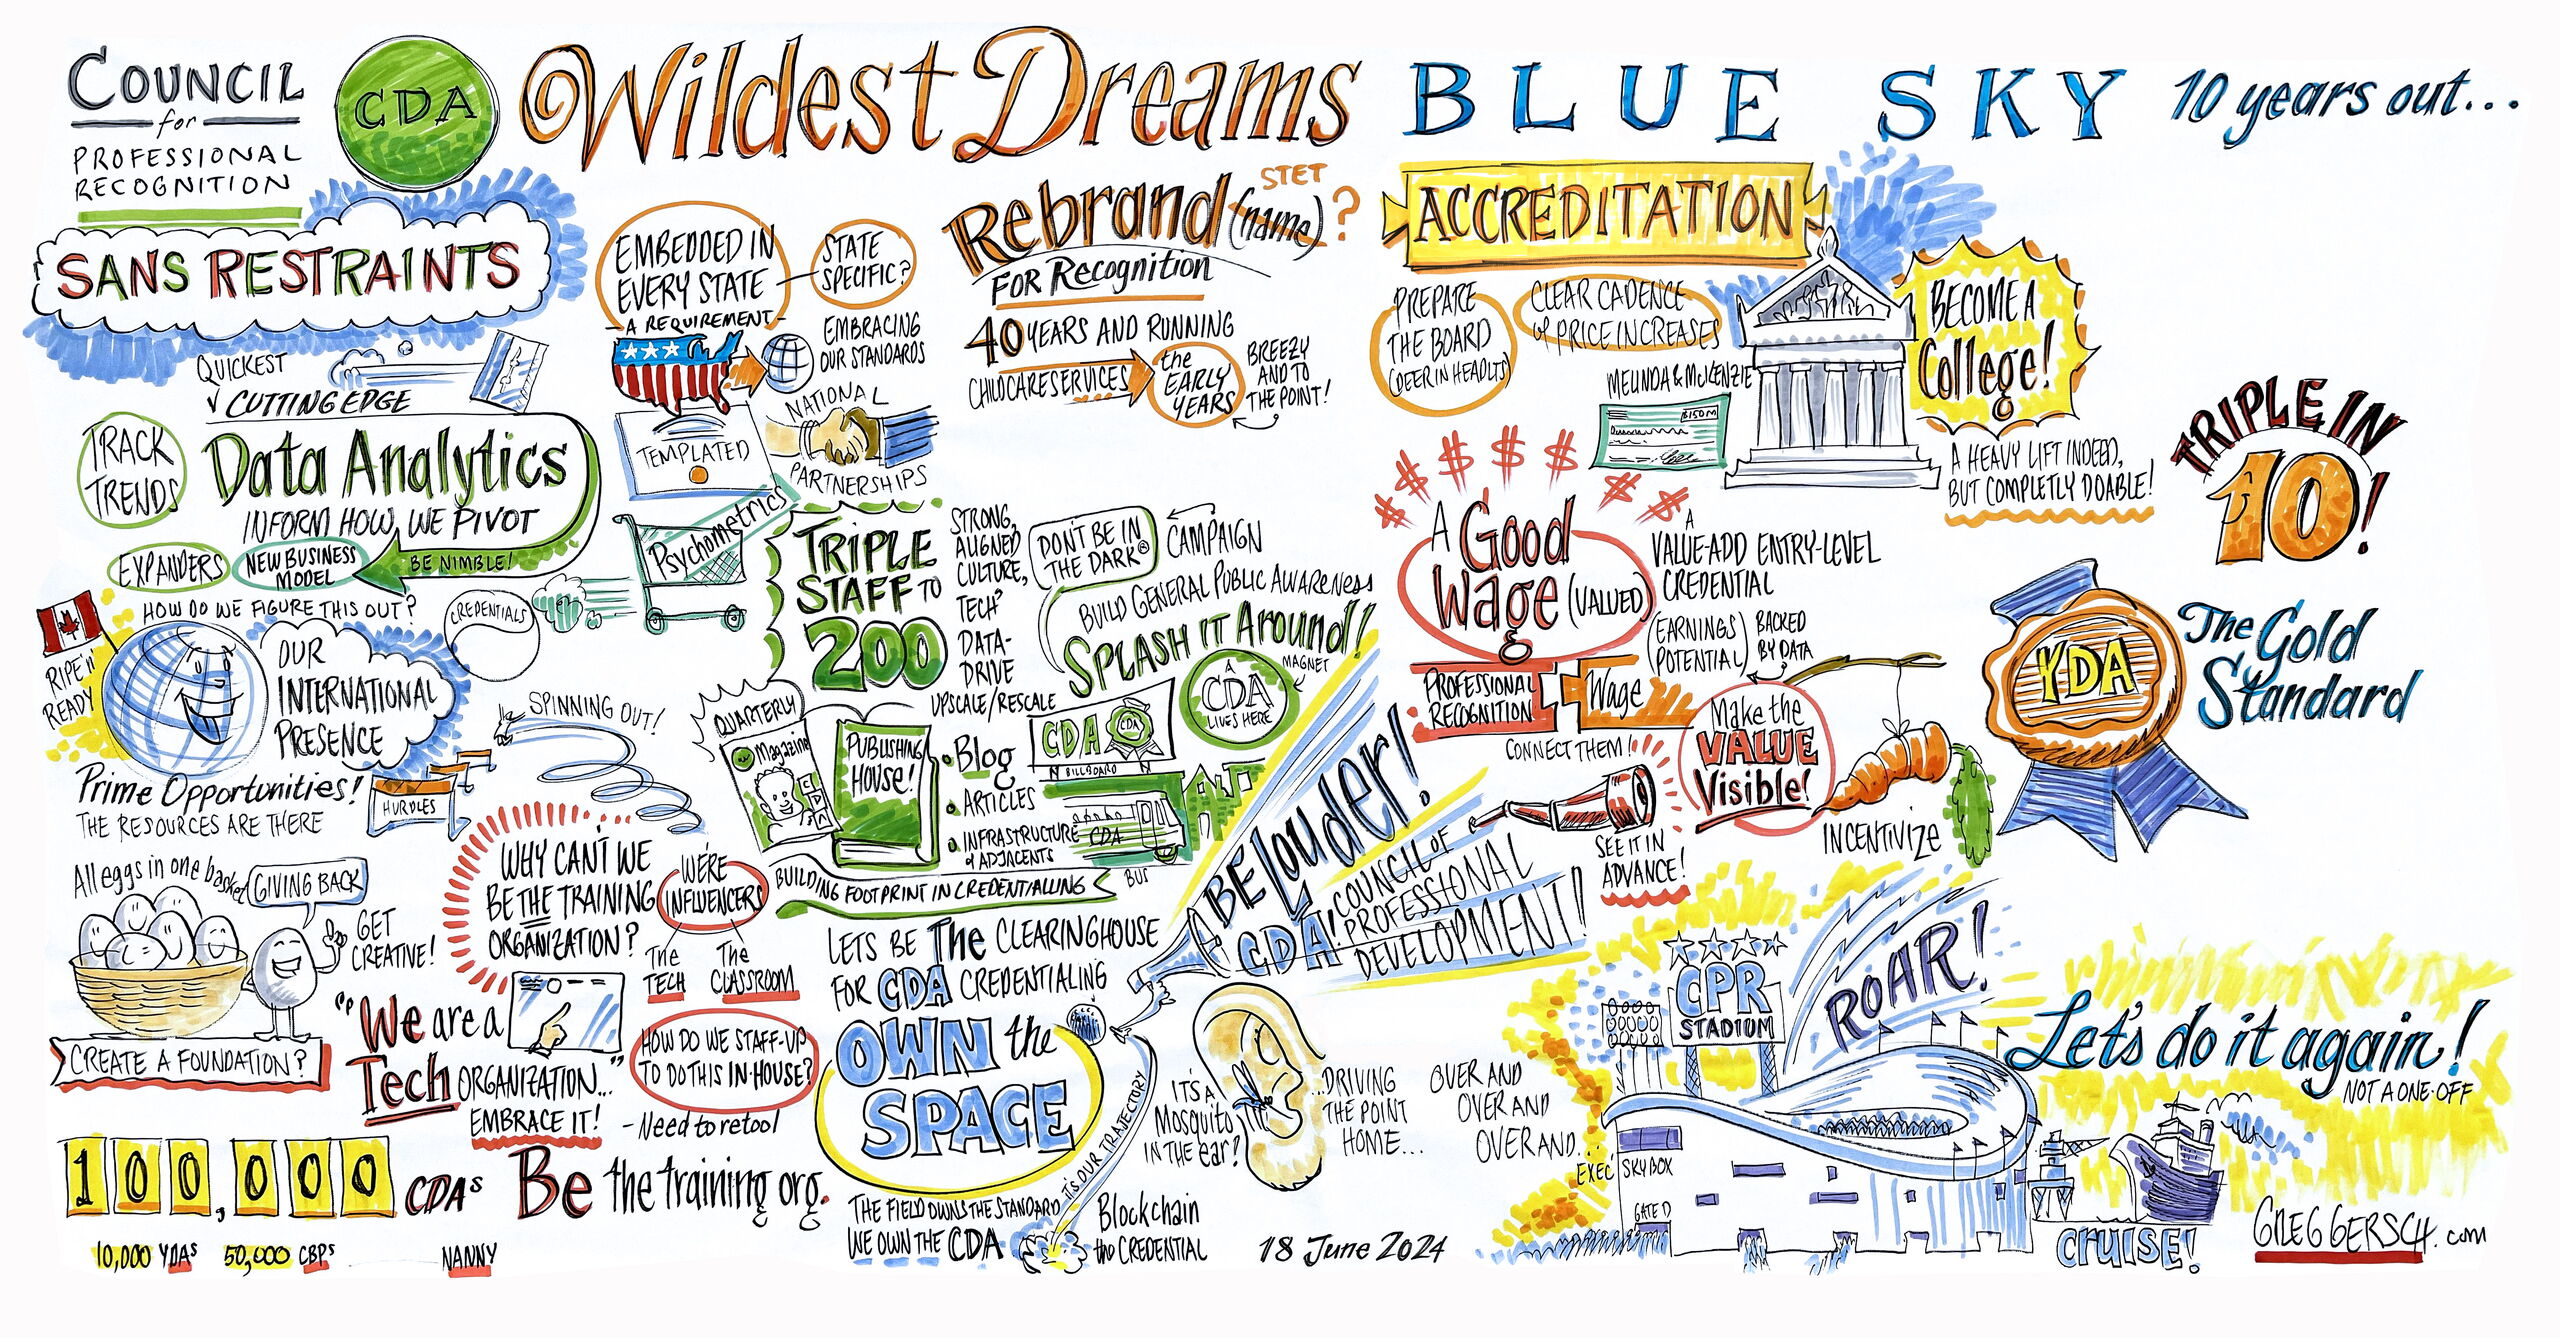 COUNCIL
for
PROFESSIONAL
RECOGNITION
CDA
Wildest Dreams
BLUE SKY
10 years out...
SANS RESTRAINTS
QUICKEST
CUTTING EDGE
TRACK
TRENDS
Data Analytics
INFORM HOW WE PIVOT
BE NIMBLE!
EXPANDERS
NEW BUSINESS
MODEL
HOW DO WE FIGURE THIS OUT?
RIPE 'n'
READY
OUR
INTERNATIONAL
PRESENCE
Prime Opportunities!
THE RESOURCES ARE THERE
HURDLES
SPINNING OUT!
CREDENTIALS
Psychometrics
EMBEDDED IN
EVERY STATE
A REQUIREMENT
STATE
SPECIFIC?
EMBRACING
OUR STANDARDS
TEMPLATED
NATIONAL
PARTNERSHIPS
Rebrand (name)?
STET
FOR Recognition
40 YEARS AND RUNNING
CHILDCARE SERVICES
the
EARLY
YEARS
BREEZY
AND TO
THE POINT!
TRIPLE
STAFF TO
200
STRONG,
ALIGNED
CULTURE,
TECH?
DATA-
DRIVE
UPSCALE/RESCALE
DON'T BE IN
THE DARK®
CAMPAIGN
BUILD GENERAL PUBLIC AWARENESS
SPLASH IT Around!
A
CDA
LIVES HERE
MAGNET
CDA
CDA
BILLBOARD
QUARTERLY
Magazine
CDA
PUBLISHING
HOUSE!
• Blog
• ARTICLES
• INFRASTRUCTURE
& ADJACENTS
CDA
BUS
BUILDING FOOTPRINT IN CREDENTIALLING
All eggs in one basket
GIVING BACK
GET
CREATIVE!
CREATE A FOUNDATION?
WHY CAN'T WE
BE THE TRAINING
ORGANIZATION?
WE'RE
INFLUENCERS
The
TECH
The
CLASSROOM
"We are a
Tech ORGANIZATION..."
EMBRACE IT!
HOW DO WE STAFF-UP
TO DO THIS IN-HOUSE?
- Need to retool
100,000 CDAs
10,000 YDAs
50,000 CBPs
NANNY
Be the training org.
LETS BE The CLEARINGHOUSE
FOR CDA CREDENTIALING
OWN the
SPACE
THE FIELD OWNS THE STANDARD
WE OWN THE CDA
IT'S OUR TRAJECTORY
Blockchain
the CREDENTIAL
BE LOUDER!
CDA!
COUNCIL OF
PROFESSIONAL
DEVELOPMENT!!
IT'S A
Mosquito
IN THE ear!
...DRIVING
THE POINT
HOME...
OVER AND
OVER AND
OVER AND...
18 June 2024
ACCREDITATION
PREPARE
THE BOARD
(DEER IN HEADLTS)
CLEAR CADENCE
of PRICE INCREASES
MELINDA & McKENZIE
$150M
BECOME A
College!
A HEAVY LIFT INDEED,
BUT COMPLETLY DOABLE!
$ $ $ $ $ $
A Good
Wage (VALUED)
A
VALUE-ADD ENTRY-LEVEL
CREDENTIAL
(EARNINGS
POTENTIAL)
BACKED
BY DATA
PROFESSIONAL
RECOGNITION
Wage
CONNECT THEM!
Make the
VALUE
Visible!
SEE IT IN
ADVANCE!
INCENTIVIZE
TRIPLE IN
10!
YDA
The Gold
Standard
CPR
STADIUM
ROAR!
EXEC.
SKYBOX
GATE D
Let's do it again!
NOT A ONE-OFF
CRUISE!
GREGGERSCH.com